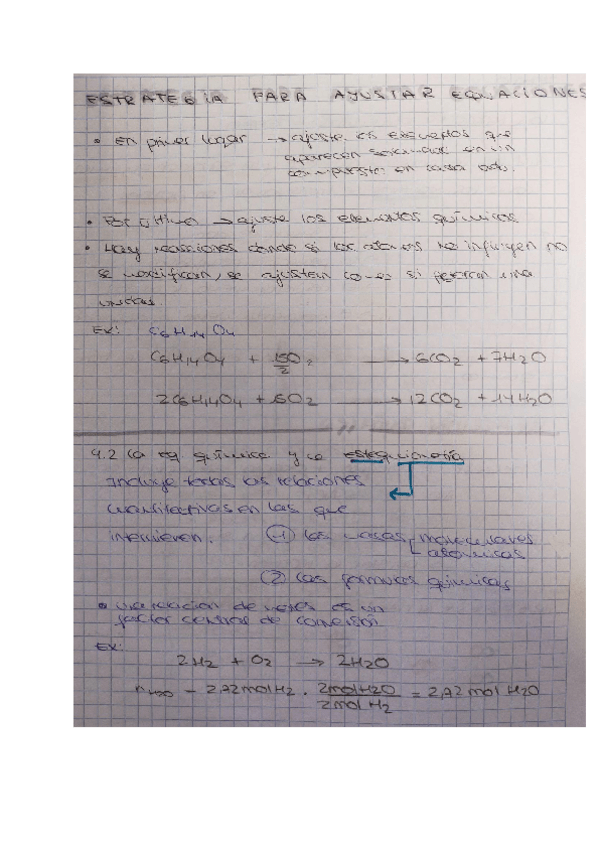 ESTRATEGIA PARA AJUSTAR EQUACIONES
• En primer lugar → ajuste los elementos que
aparecen en un
compuesto en cada lado.
• Por último → ajuste los elementos químicos
• Hay reacciones donde si los no influyen no
se modifican, se ajusten como si fueran una
unidad.
EX: C6H14O4
C6H14O4 + 15O2/2 → 6CO2 + 7H2O
2C6H14O4 + 15O2 → 12CO2 + 14H2O
4.2 La eq química y la estequiometría
Incluye todas las relaciones
cuantitativas en las que
intervienen. ① las masas moleculares
atómicas
② Las fórmulas químicas
• una relación de moles es un
factor de conversión
EX:
2H2 + O2 → 2H2O
nH2O = 2,72 mol H2 · 2 mol H2O / 2 mol H2 = 2,72 mol H2O